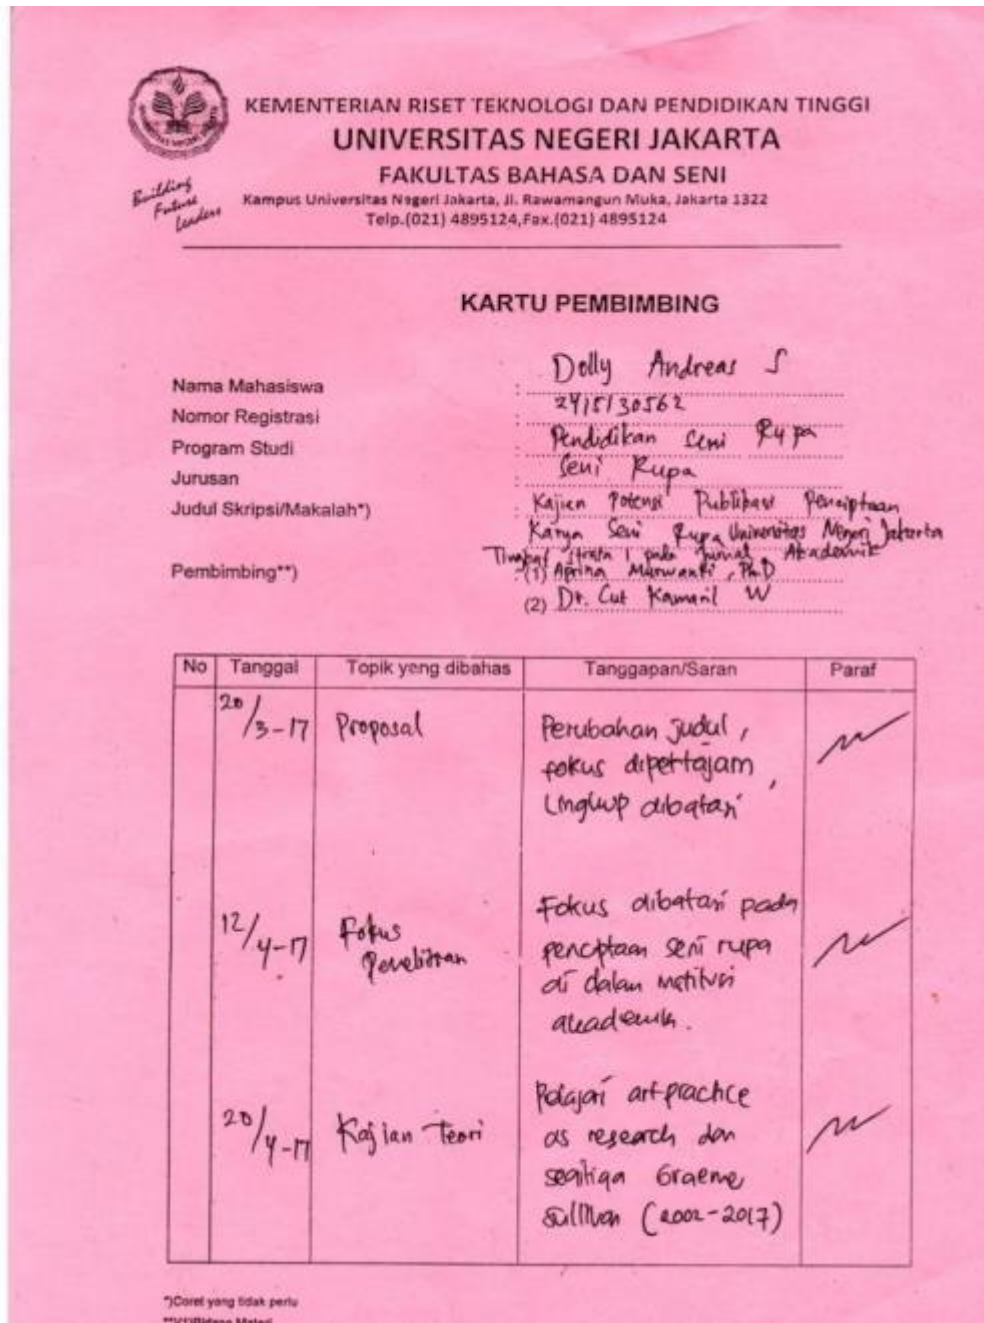 KEMENTERIAN RISET TEKNOLOGI DAN PENDIDIKAN TINGGI
UNIVERSITAS NEGERI JAKARTA
FAKULTAS BAHASA DAN SENI
Building
Future
Leaders
Kampus Universitas Negeri Jakarta, Jl. Rawamangun Muka, Jakarta 1322
Telp.(021) 4895124,Fax.(021) 4895124
KARTU PEMBIMBING
Nama Mahasiswa : Dolly Andreas S
Nomor Registrasi : 2415130562
Program Studi : Pendidikan Seni Rupa
Jurusan : Seni Rupa
Judul Skripsi/Makalah*) : Kajian Potensi Publikasi Penciptaan
Karya Seni Rupa Universitas Negeri Jakarta
Tingkat Strata 1 pada Jurnal Akademik
Pembimbing**) : (1) Aprina Murwanti, Ph.D
(2) Dr. Cut Kamaril W
No Tanggal Topik yang dibahas Tanggapan/Saran Paraf
20/3-17 Proposal Perubahan judul,
fokus dipertajam,
Lingkup dibatasi
12/4-17 Fokus Penelitian Fokus dibatasi pada
penciptaan seni rupa
di dalam institusi
akademik.
20/4-17 Kajian Teori Pelajari art practice
as research dan
segitiga Graeme
Sullivan (2002-2017)
*)Coret yang tidak perlu